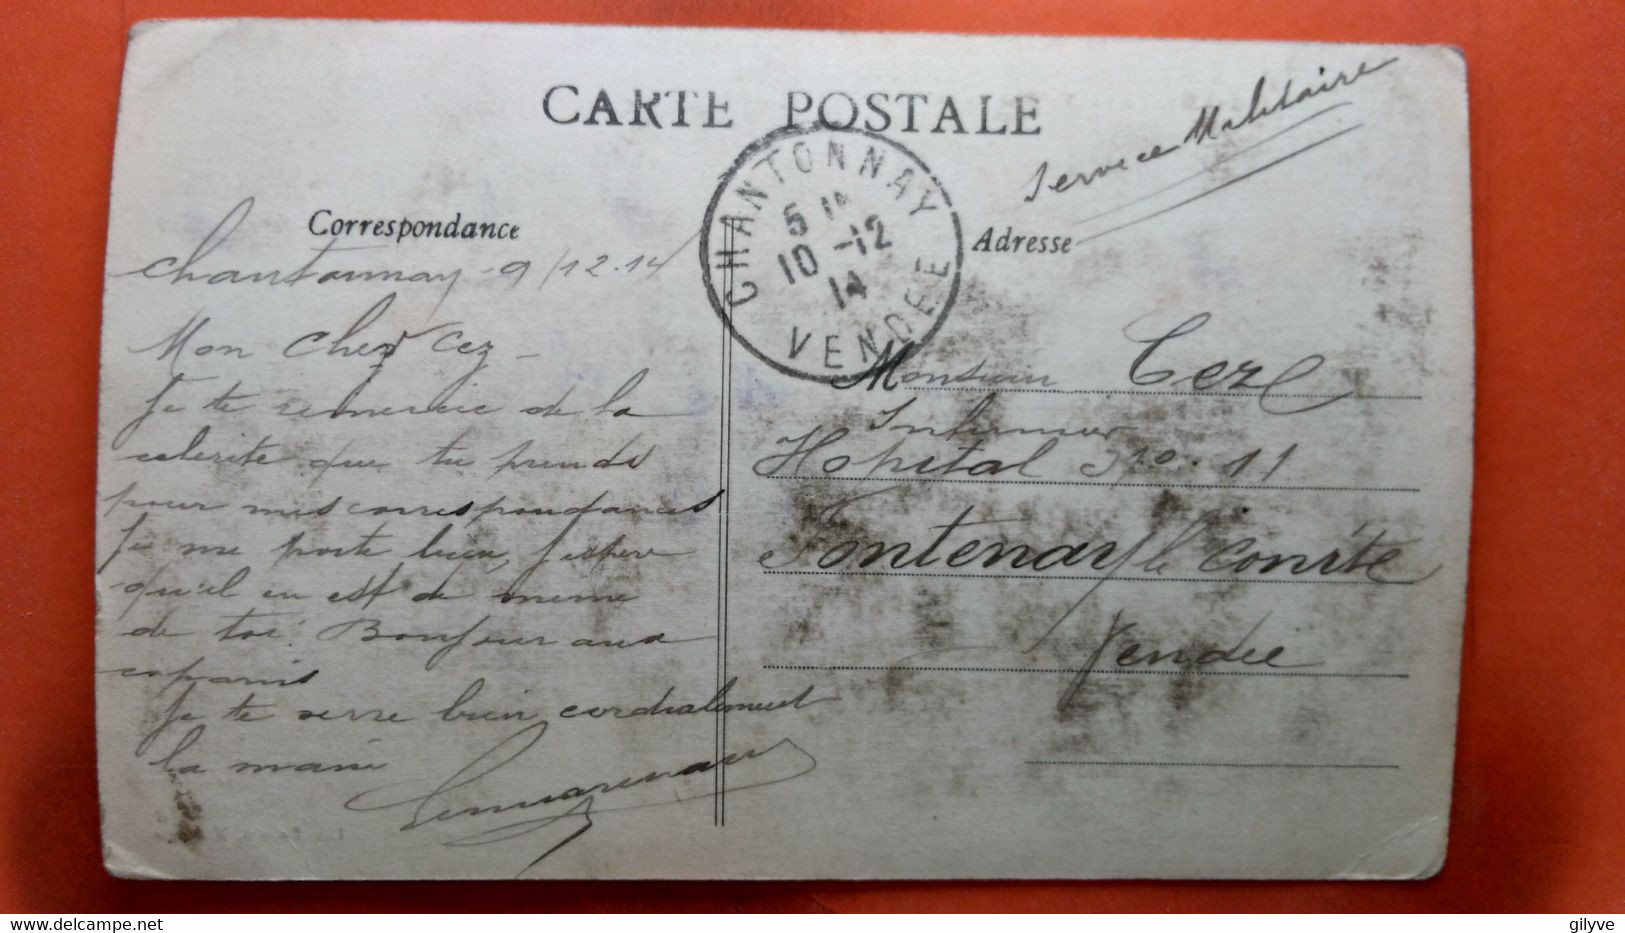 CARTE POSTALE
Service Militaire
CHANTONNAY
5
10 -12
14
VENDEE
Correspondance
Adresse
Chantonnay - 9/12.14
Mon Cher Cez -
Je te remercie de la
celerite que tu prends
pour mes correspondances
Je me porte bien, J'espere
qu'il en est de meme
de toi. Bonjour aux
copains
Je te serre bien cordialement
la main
Monsieur Cez
Infirmier
Hopital No. 11
Fontenay le Comte
Vendée
gilyve